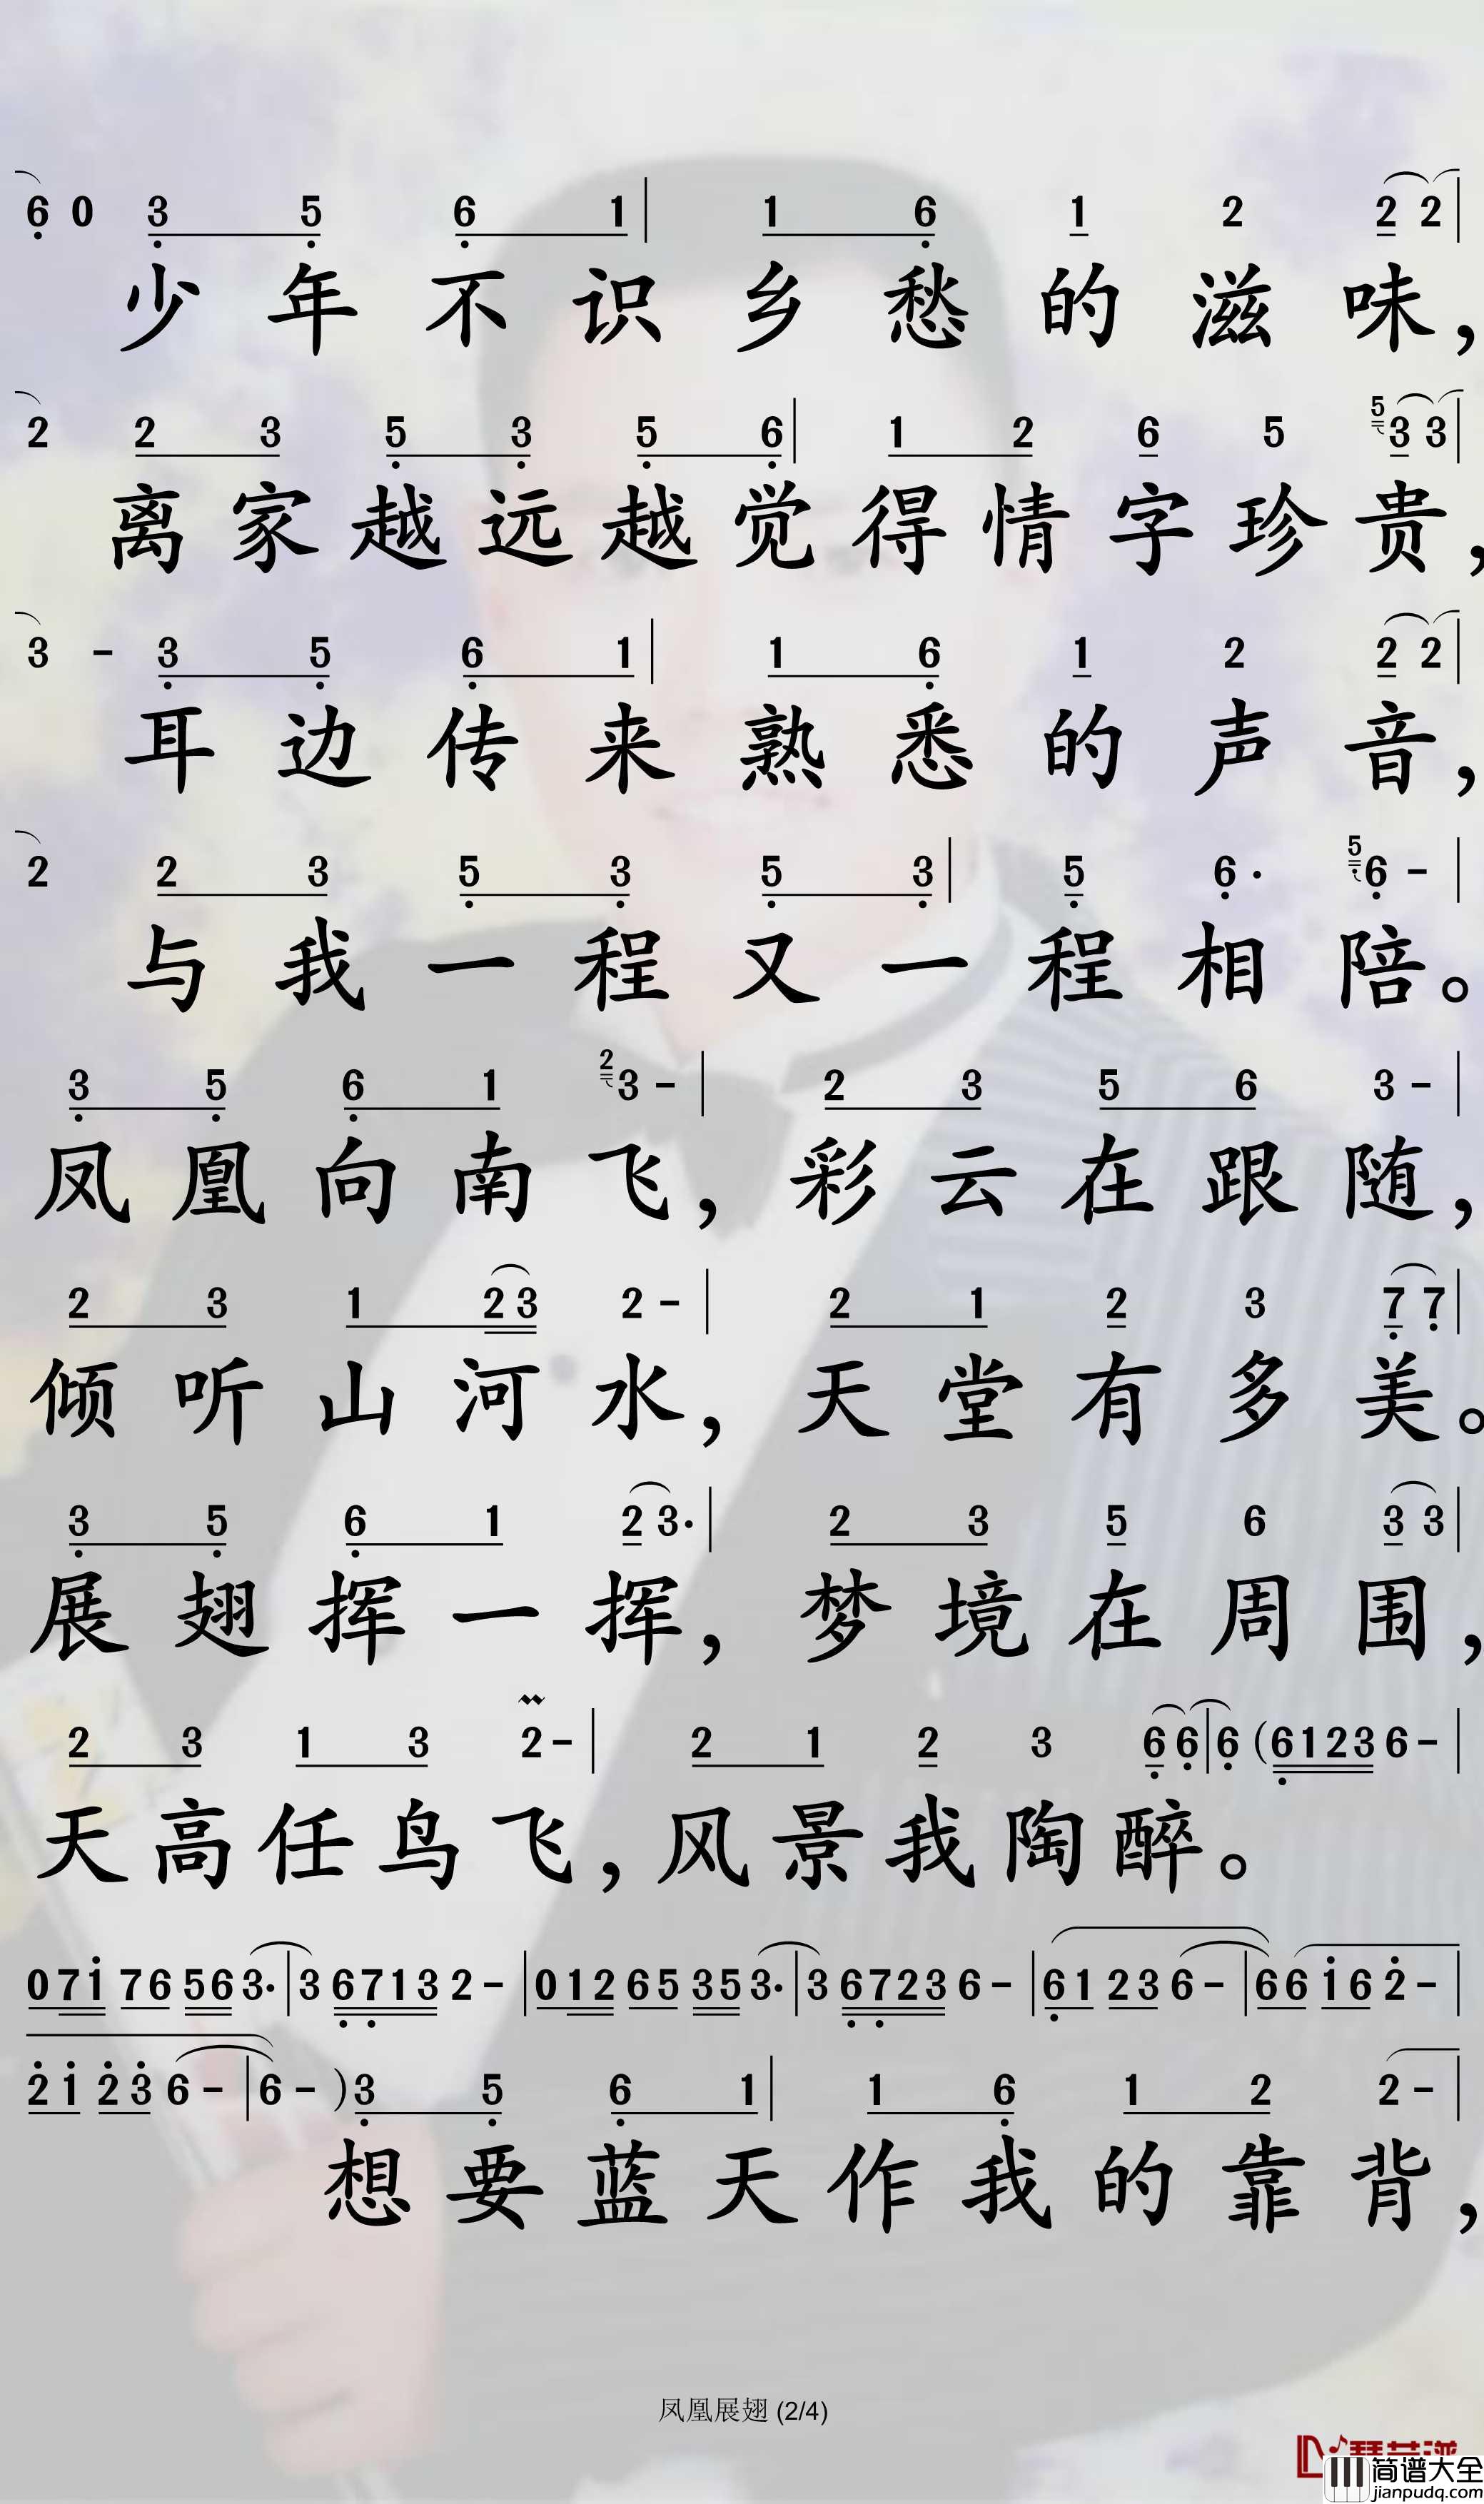 6 0 3 5 6 1 | 1 6 1 2 2 2 |
少年不识乡愁的滋味，
2 2 3 5 3 5 6 | 1 2 6 5 5 3 3 |
离家越远越觉得情字珍贵，
3 - 3 5 6 1 | 1 6 1 2 2 2 |
耳边传来熟悉的声音，
2 2 3 5 3 5 3 | 5 6· 5 6 - |
与我一程又一程相陪。
3 5 6 1 2 3 - | 2 3 5 6 3 - |
凤凰向南飞，彩云在跟随，
2 3 1 2 3 2 - | 2 1 2 3 7 7 |
倾听山河水，天堂有多美。
3 5 6 1 2 3· | 2 3 5 6 3 3 |
展翅挥一挥，梦境在周围，
2 3 1 3 2 - | 2 1 2 3 6 6 | 6 (6123 6 - |
天高任鸟飞，风景我陶醉。
0 7 1 7 6 5 6 3· | 3 6 7 1 3 2 - | 0 1 2 6 5 3 5 3· | 3 6 7 2 3 6 - | 6 1 2 3 6 - | 6 6 1 6 2 - |
2 1 2 3 6 - | 6 - ) 3 5 6 1 | 1 6 1 2 2 - |
想要蓝天作我的靠背，
凤凰展翅 (2/4)
简谱大全
jianpudq.com